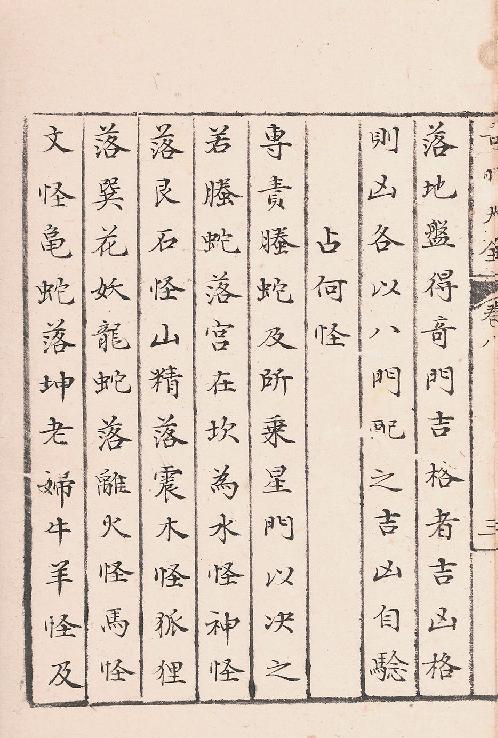 落地盤得竒門吉格者吉凶格
則凶各以八門配之吉凶自騐
占何怪
専責螣蛇及所乗星門以决之
若螣蛇落宮在坎為水怪神怪
落艮石怪山精落震木怪狐狸
落巽花妖龍蛇落離火怪馬怪
文怪亀蛇落坤老婦牛羊怪及